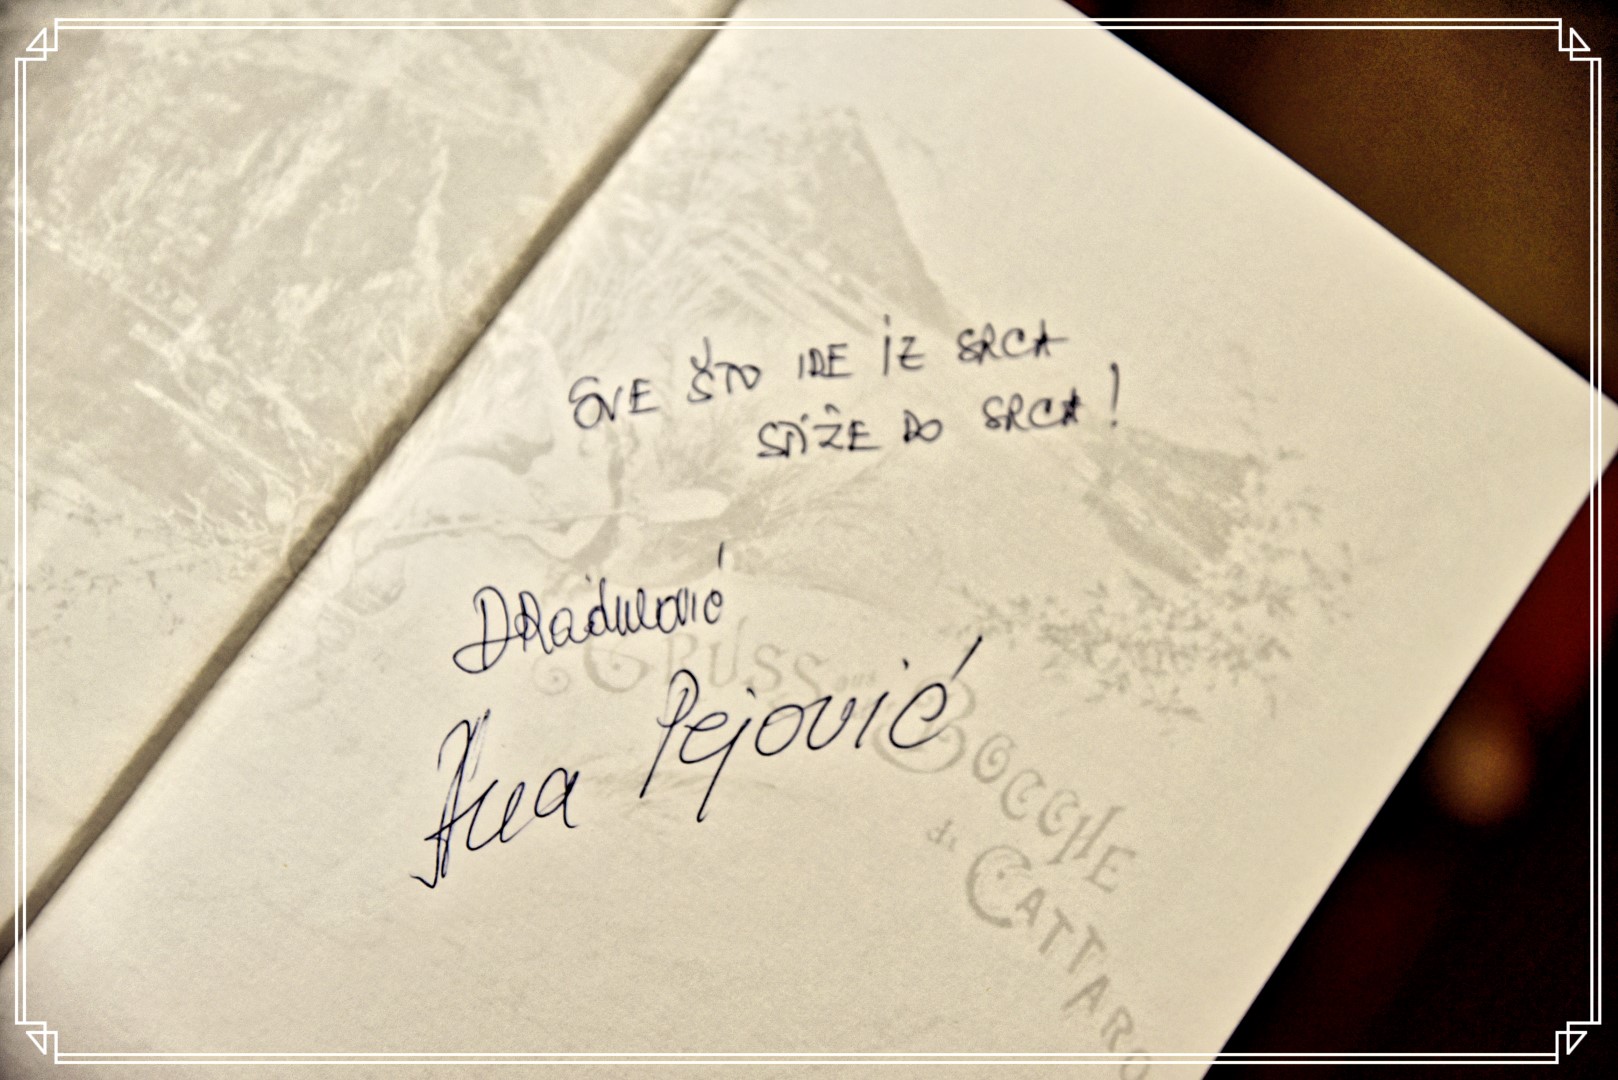 SVE ŠTO IDE IZ SRCA
STIŽE DO SRCA!
DRadulović
Ana Pejović
GRUSS aus
BOCCHE
di CATTARO